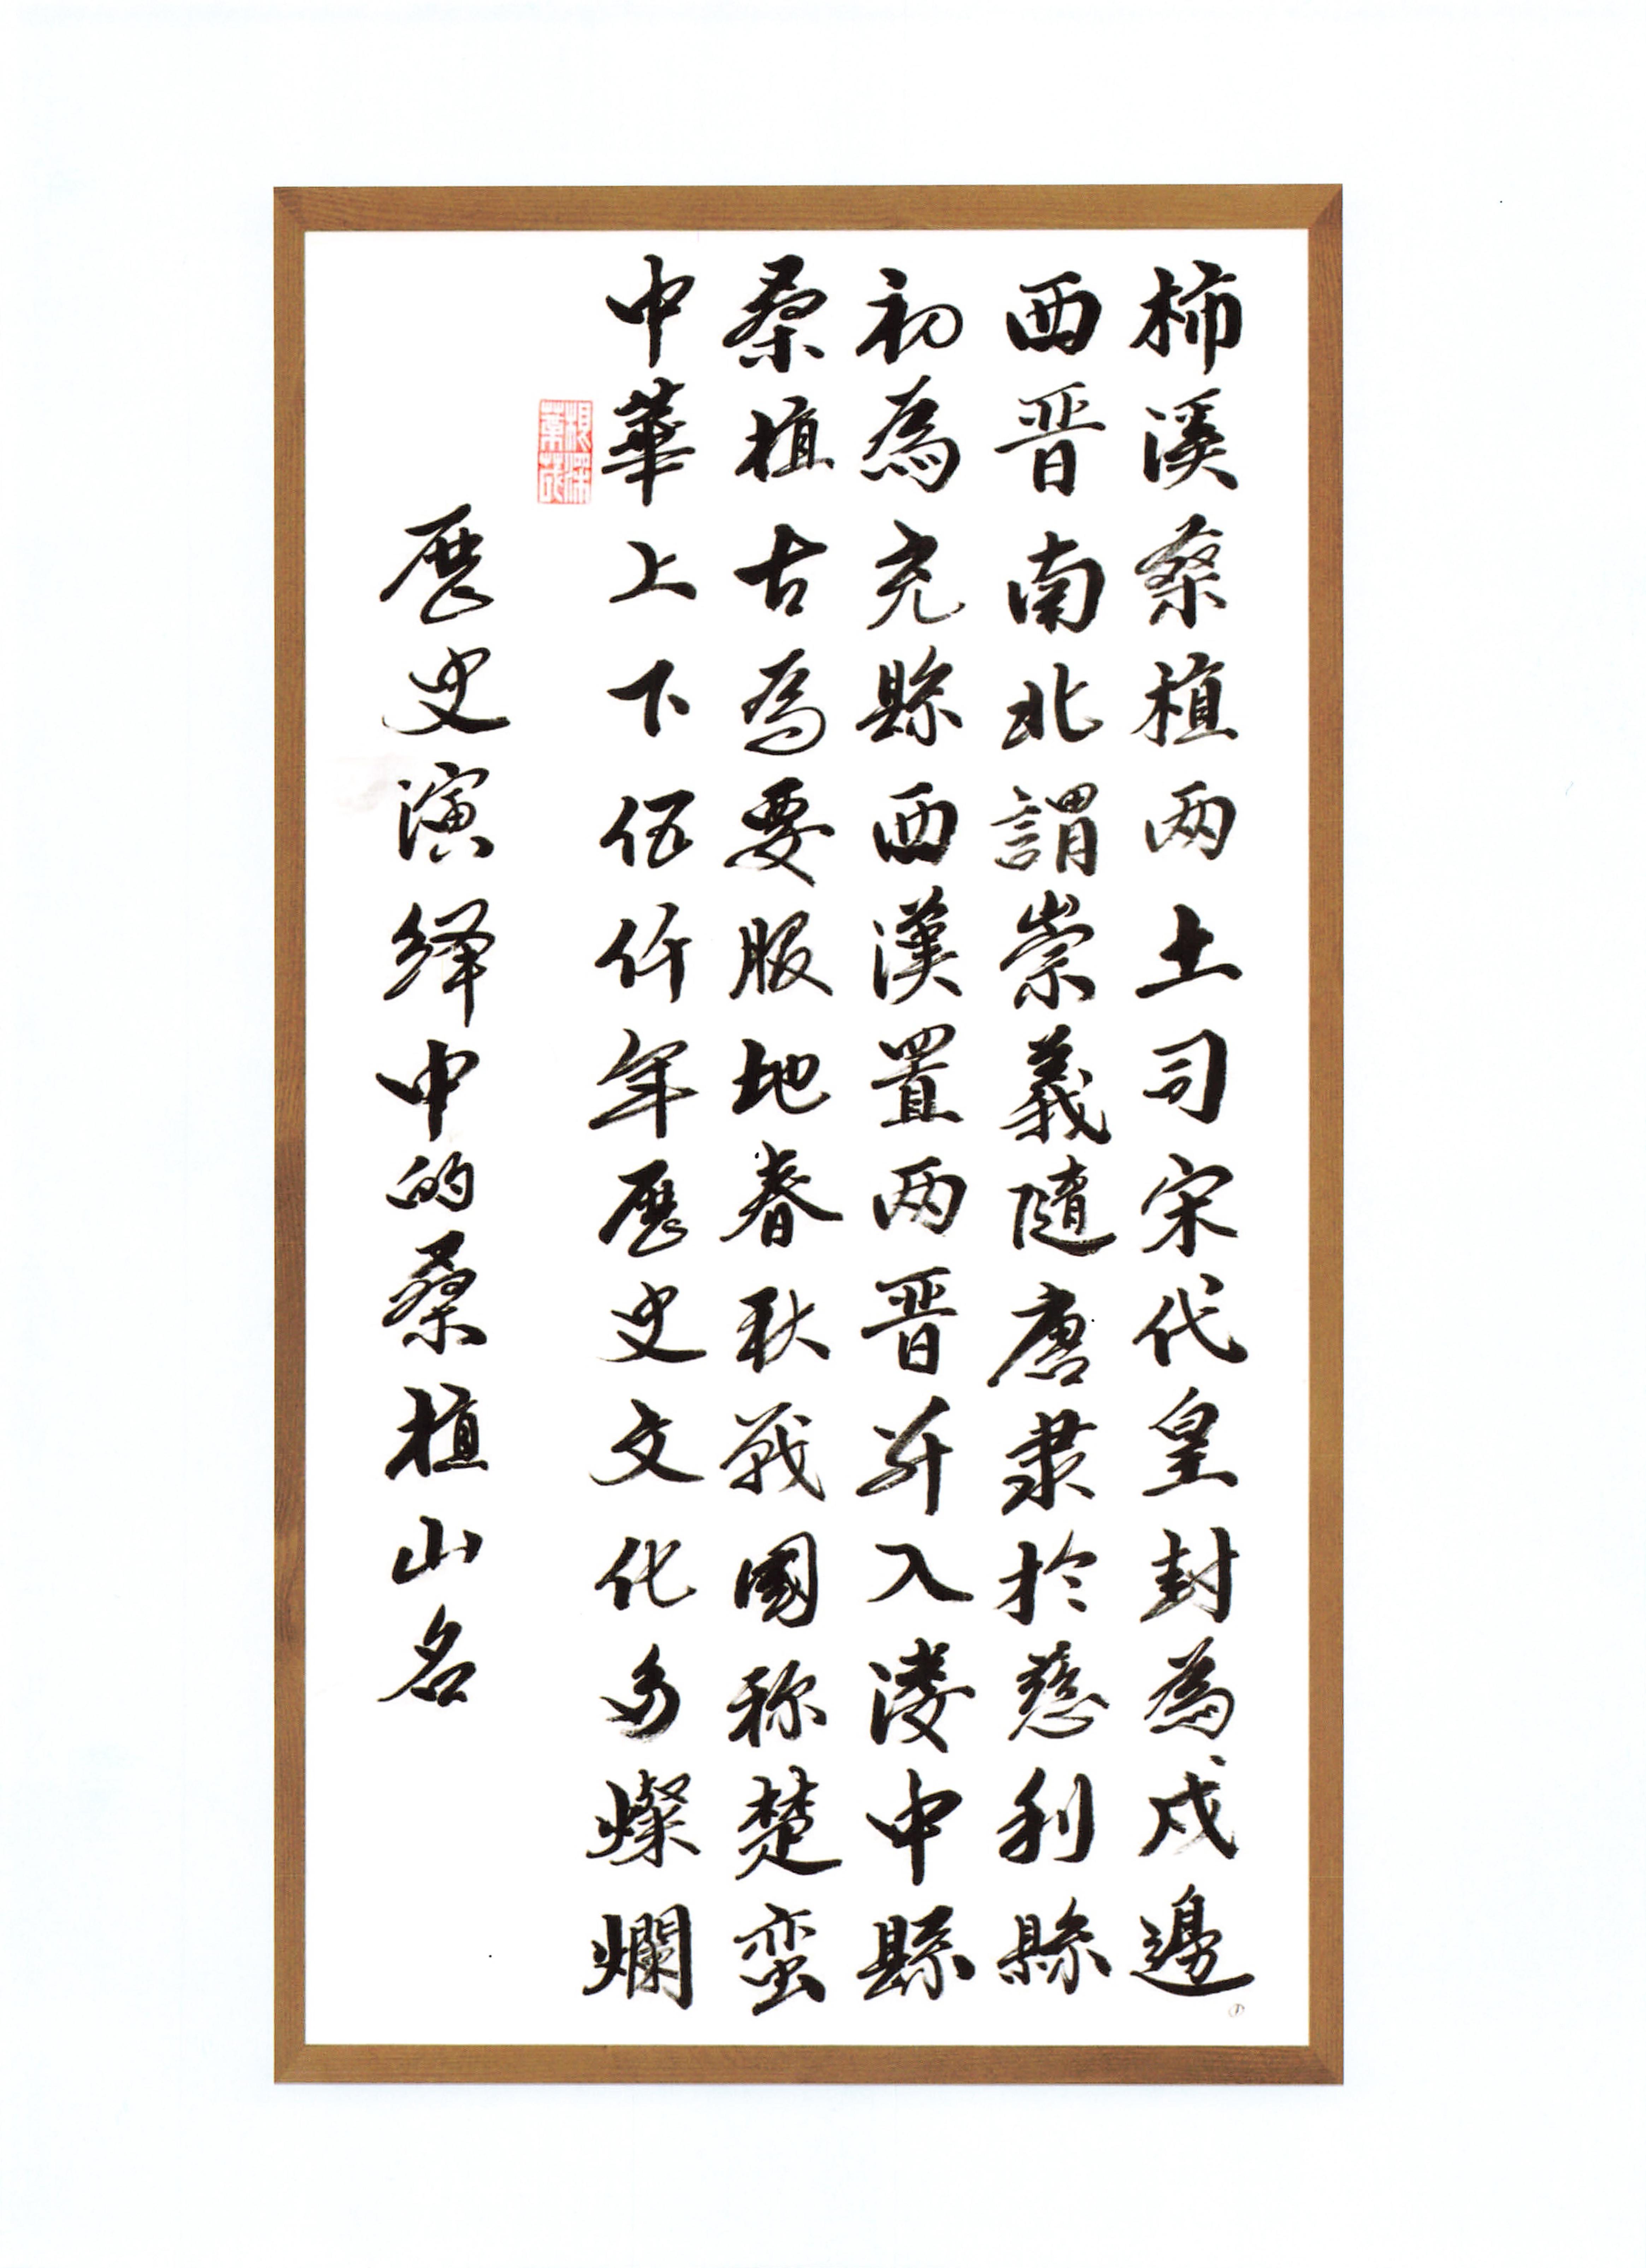 歷史演绎中的桑植山名
根深葉茂
中華上下伍仟年歷史文化多燦爛
桑植古為要服地春秋戰國称楚蛮
初為充縣西漢置两晋并入溇中縣
西晋南北謂崇義隨唐隶於慈利縣
柿溪桑植两土司宋代皇封為戍邊